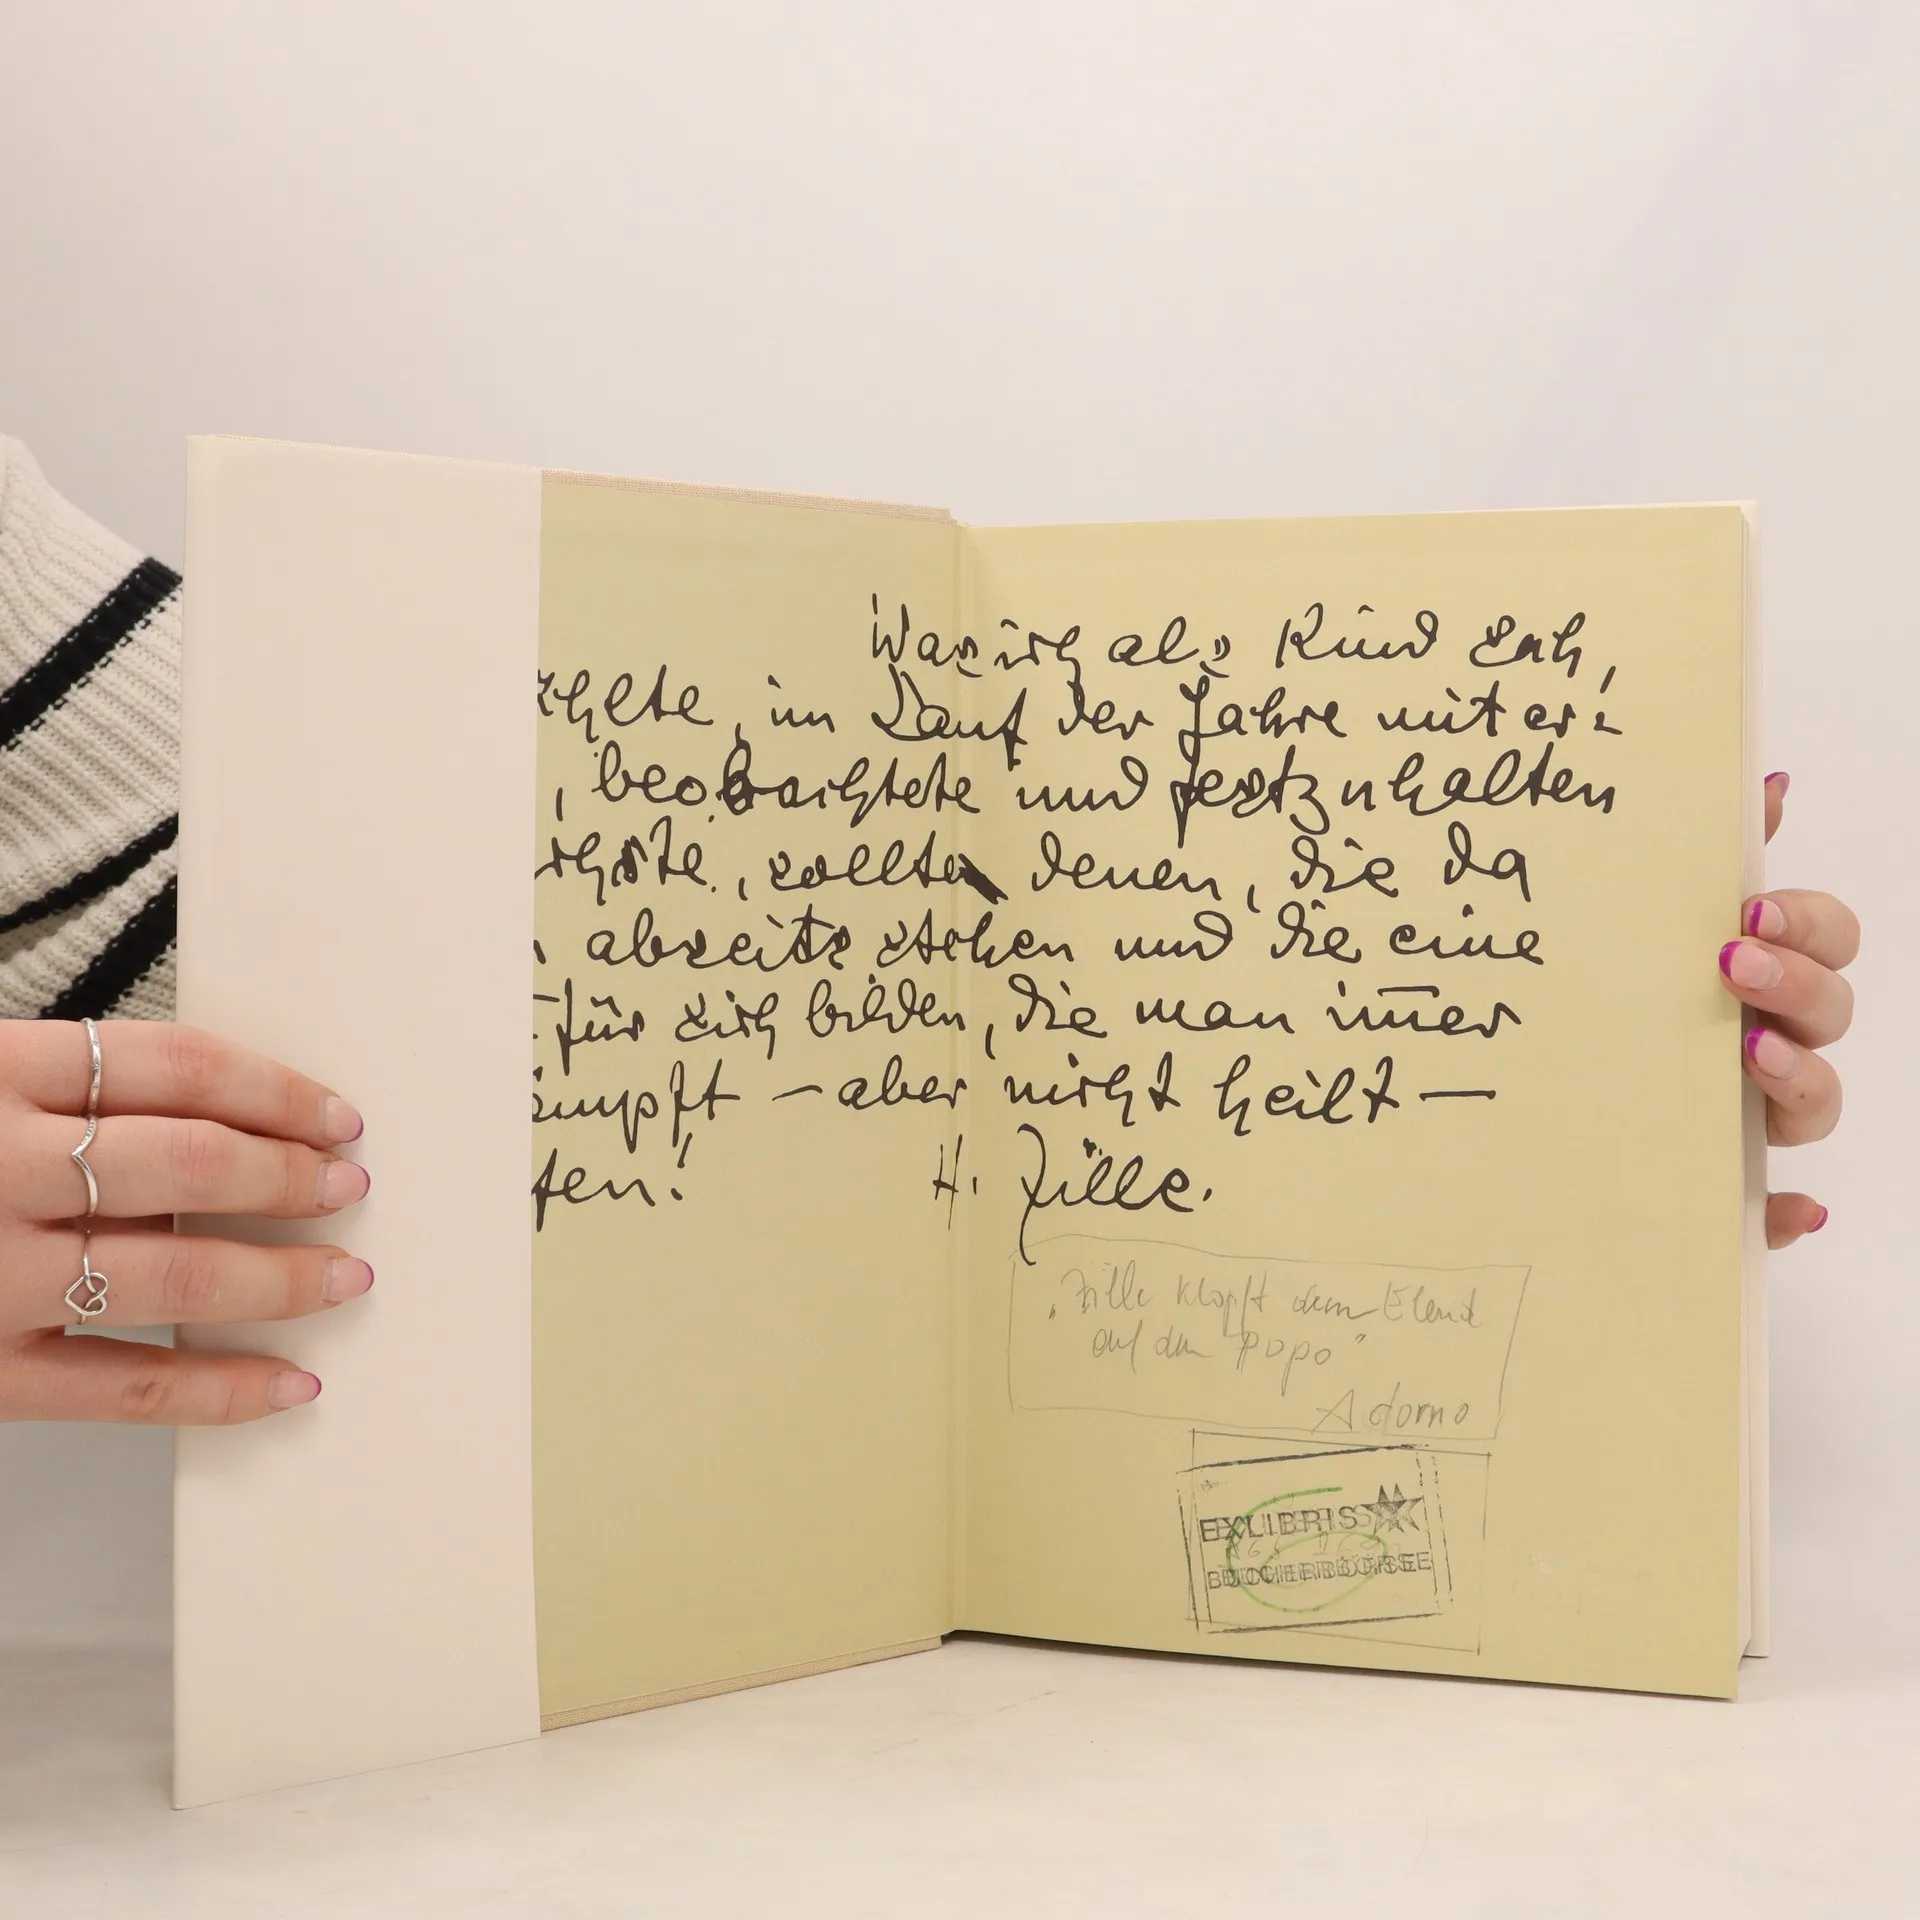 Was ich als Kind sah,
hlte, im Lauf der Jahre mit er-
, beobachtete und festzuhalten
chste, sollte denen, die da
abseits stehen und die eine
für sich bilden, die man im̅er
ämpft – aber nicht heilt –
ten!
H. Zille.
„Zille klopft dem Elend
auf den Popo"
Adorno
EXLIBRIS
BÜCHERBÖRSE